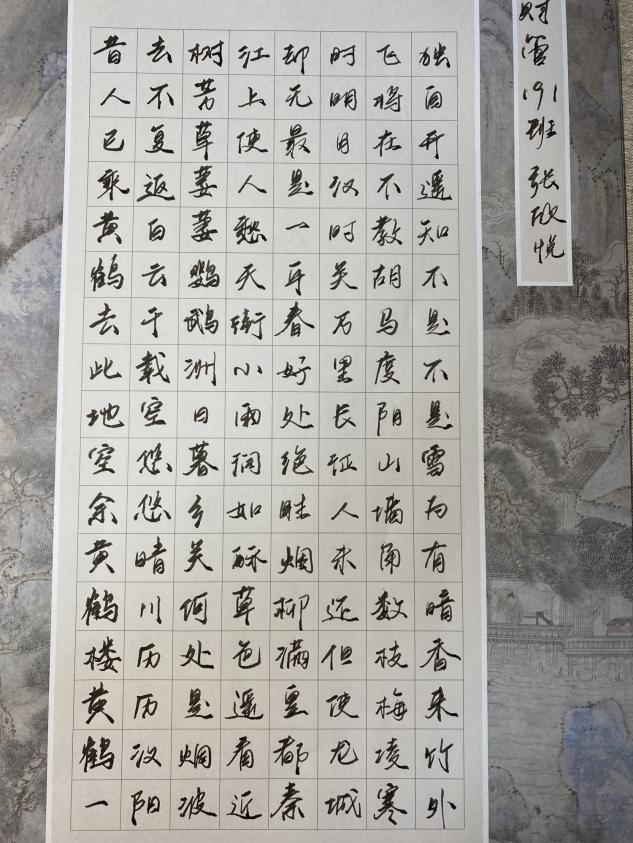 昔人已乘黄鹤去此地空余黄鹤楼黄鹤一
去不复返白云千载空悠悠晴川历历汉阳
树芳草萋萋鹦鹉洲日暮乡关何处是烟波
江上使人愁天街小雨润如酥草色遥看近
却无最是一年春好处绝胜烟柳满皇都秦
时明月汉时关万里长征人未还但使龙城
飞将在不教胡马度阴山墙角数枝梅凌寒
独自开遥知不是不是雪为有暗香来竹外
财管191班 张欣悦